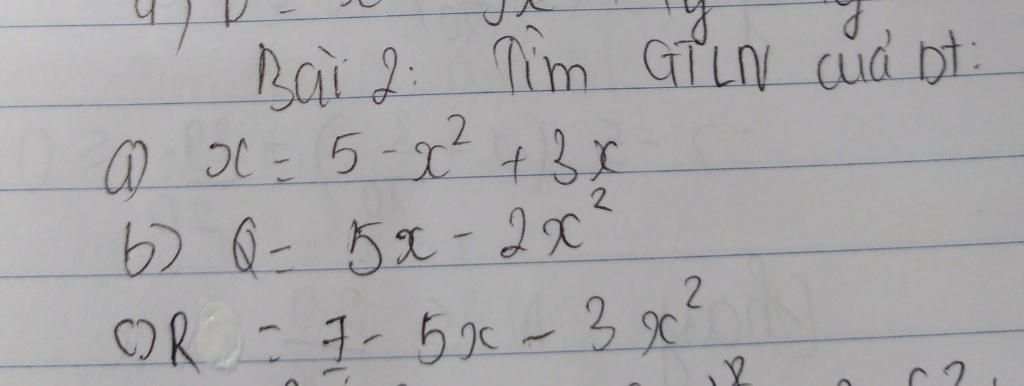 Bài 2: Tìm GTLN của bt:
a) x = 5 - x² + 3x
b) Q = 5x - 2x²
c) R = 7 - 5x - 3x²